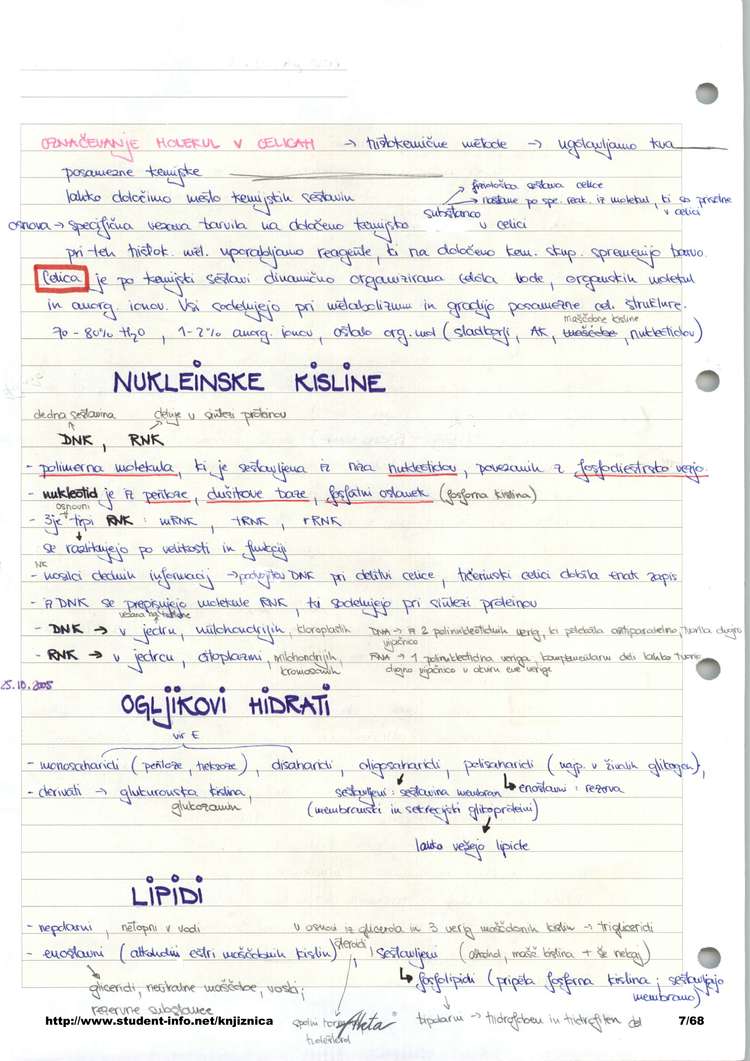 OZNAČEVANJE MOLEKUL V CELICAH → histokemične metode → ugotavljamo kva
posamezne kemijske
lahko določimo mesto kemijskih sestavin
fiziološka sestava celice
nastane po spe. reak. iz molekul, ki so prisotne v celici
osnova → specifična vezava barvila na določeno kemijsko substanco v celici
pri teh histok. met. uporabljamo reagente, ki na določeno kem. skup. spremenijo barvo.
Celica je po kemijski sestavi dinamično organizirana celota vode, organskih molekul
in anorg. ionov. Vsi sodelujejo pri metabolizmu in gradijo posamezne cel. strukture.
maščobne kisline
70 - 80% H2O , 1-2% anorg. ionov, ostalo org. mol (sladkorji, AK, maščobe, nukleotidov)
NUKLEINSKE KISLINE
dedna sestavina deluje v sintezi proteinov
DNK , RNK
- polimerna molekula, ki je sestavljena iz niza nukleotidov, povezanih z fosfodiestrsko vezjo.
- nukleotid je iz pentoze, dušikove baze, fosfatni ostanek (fosforna kislina)
osnovni
- 3je tipi RNK : mRNK , tRNK , rRNK
se razlikujejo po velikosti in funkciji
NK
- nosilci dednih informacij → podvojitev DNK pri delitvi celice, hčerinski celici dobita enak zapis
- iz DNK se prepisujejo molekule RNK, ki sodelujejo pri sintezi proteinov
vezana na histone
- DNK → v jedru, mitohondrijih, kloroplastih DNA → iz 2 polinukleotidnih verig, ki potekata antiparalelno, tvorita dvojno vijačnico
- RNK → v jedrcu, citoplazmi, mitohondrijih, kromosomih RNA → 1 polinukleotidna veriga, komplementarni deli lahko tvorijo dvojno vijačnico v okviru ene verige
25.10.2005
OGLJIKOVI HIDRATI
vir E
- monosaharidi (pentoze, heksoze), disaharidi, oligosaharidi, polisaharidi (najp. v živalih glikogen),
- derivati → glukuronska kislina, glukozamin
sestavljeni : sestavina membran
(membranski in sekrecijski glikoproteini)
enostavni : rezerva
lahko vežejo lipide
LIPIDI
- nepolarni, netopni v vodi v osnovi iz glicerola in 3 verig maščobnih kislin → trigliceridi
- enostavni (alkoholni estri maščobnih kislin), steroidi, sestavljeni (alkohol, mašč kislina + še nekaj)
gliceridi, nevtralne maščobe, voski;
rezervne substance
fosfolipidi (pripeta fosforna kislina; sestavljajo membrano)
spolni hormoni
holesterol
bipolarni → hidrofoben in hidrofilen del
http://www.student-info.net/knjiznica
7/68